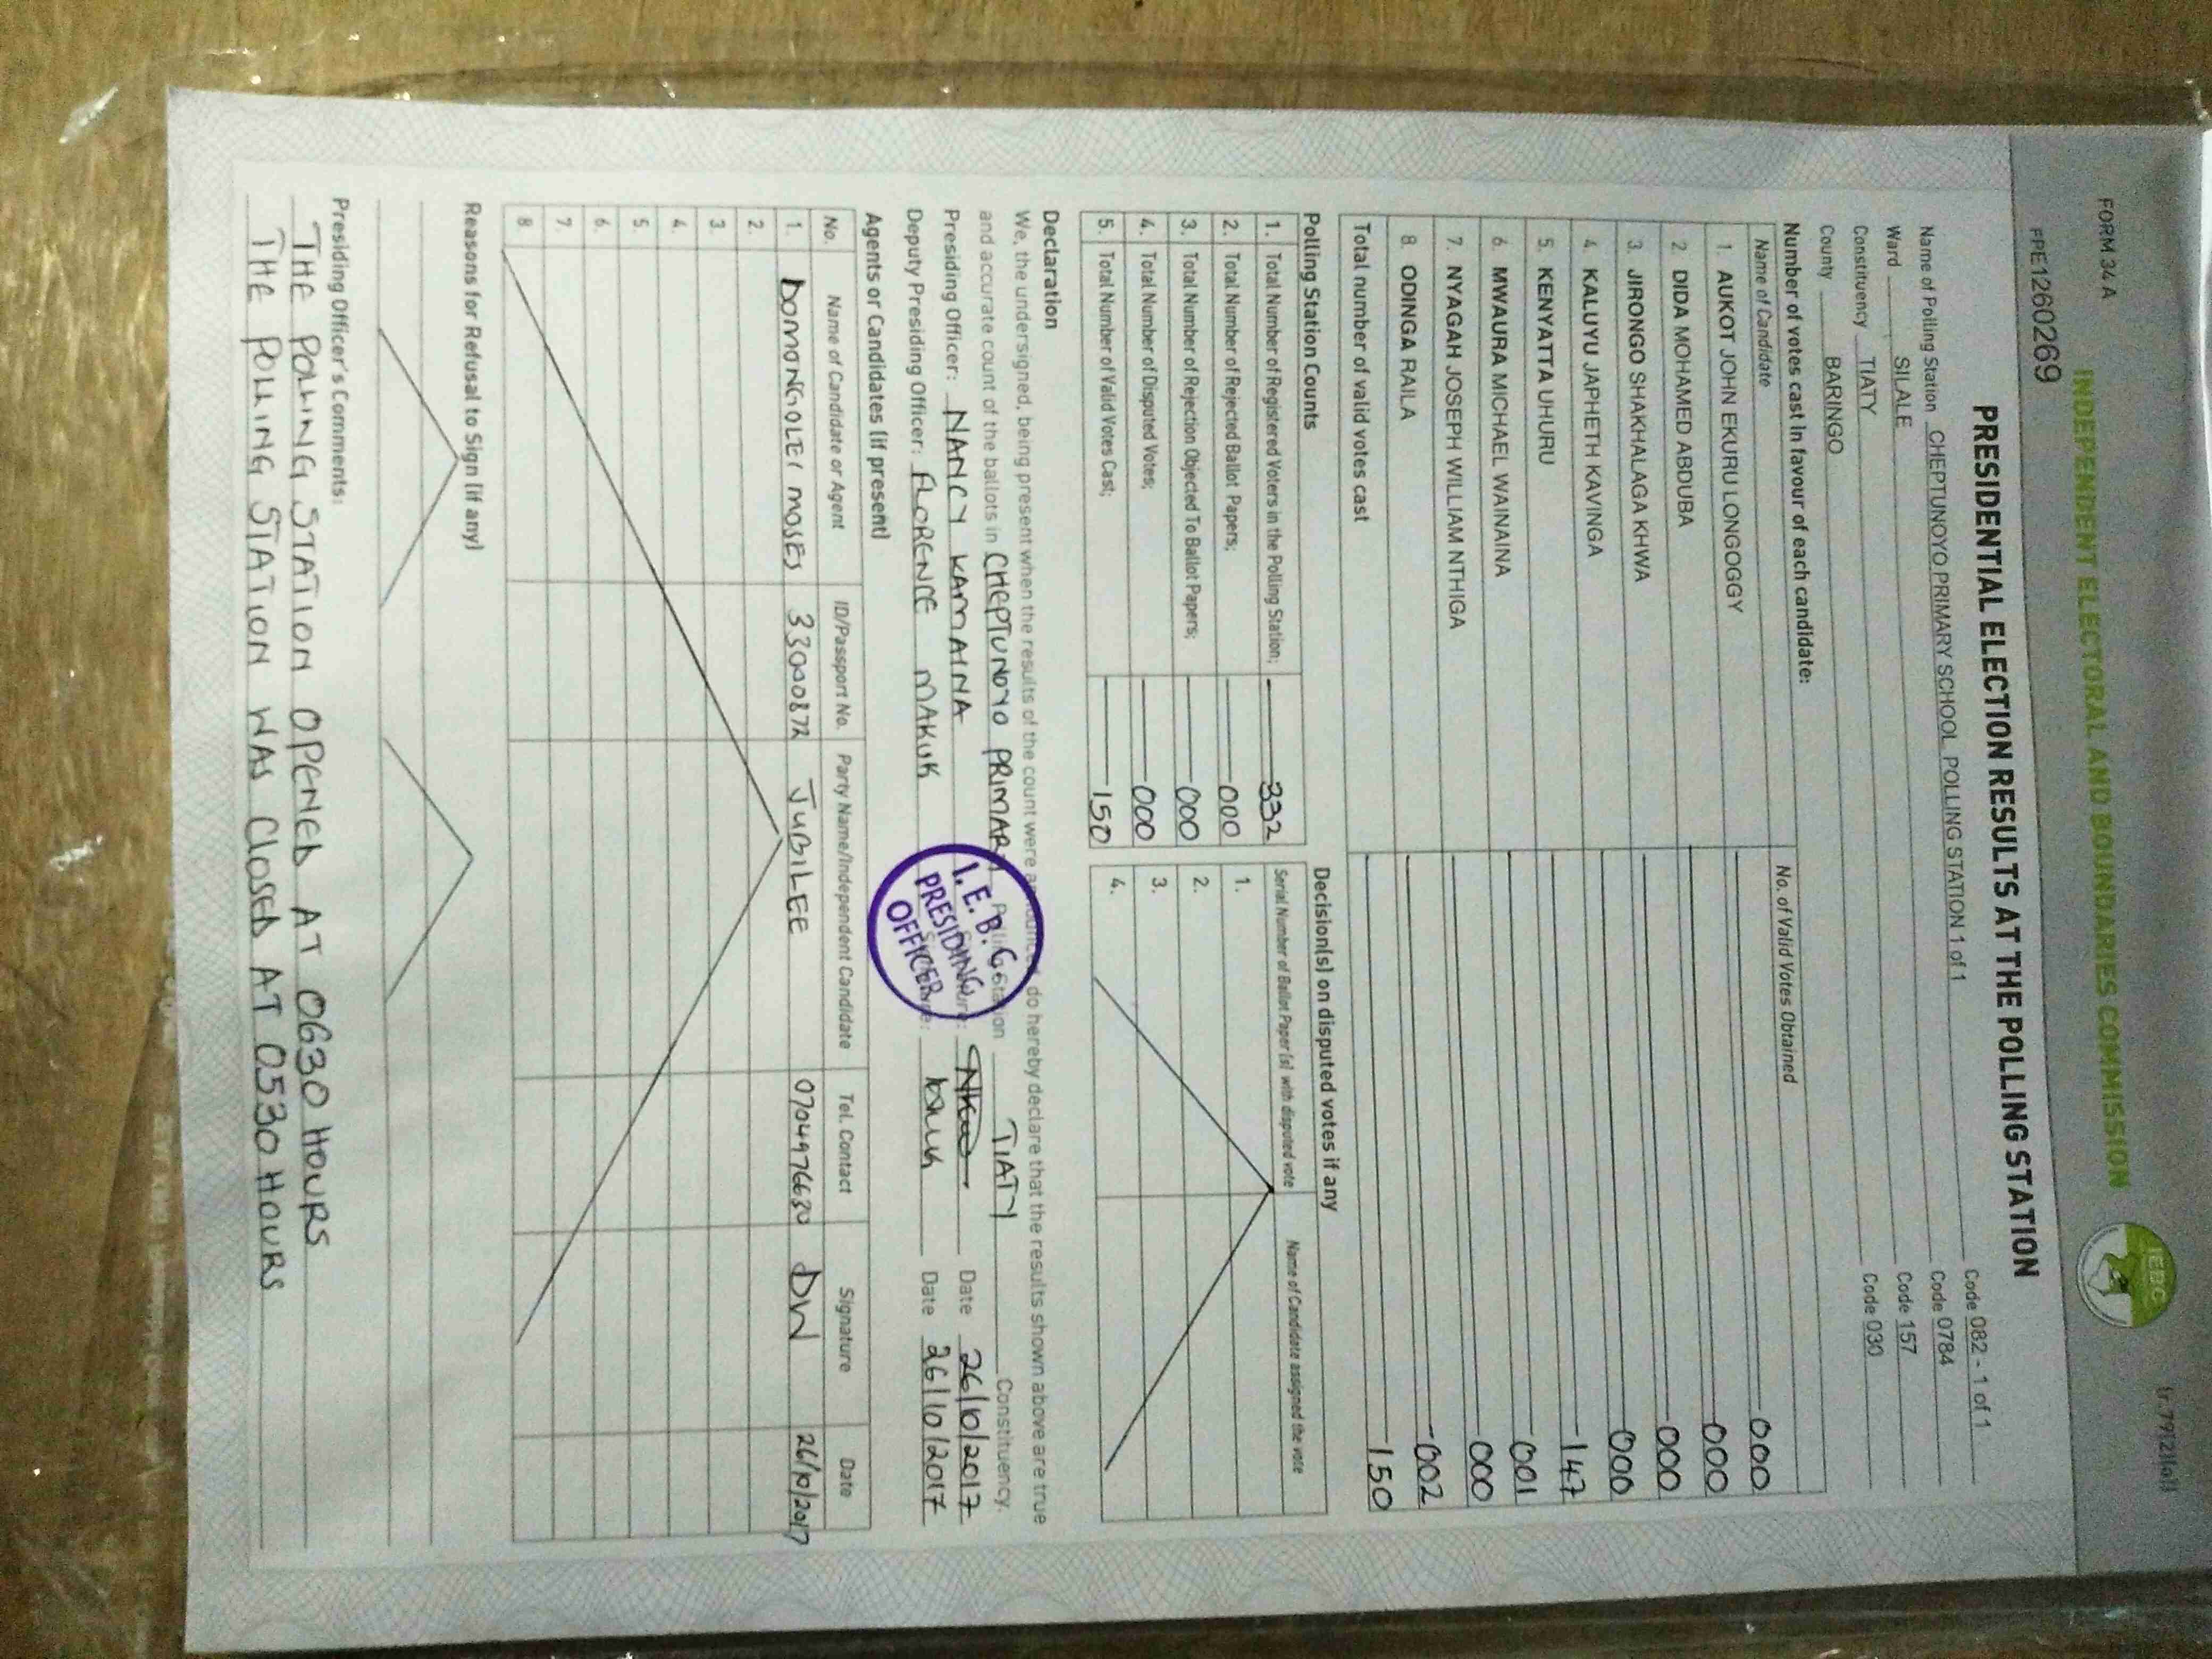 (r.79(2)(a))
FORM 34 A
INDEPENDENT ELECTORAL AND BOUNDARIES COMMISSION
IEBC
PPE1260269
PRESIDENTIAL ELECTION RESULTS AT THE POLLING STATION
Name of Polling Station CHEPTUNOYO PRIMARY SCHOOL POLLING STATION 1 of 1 Code 082 - 1 of 1
Ward SILALE Code 0784
Constituency TIATY Code 157
County BARINGO Code 030
Number of votes cast in favour of each candidate:
Name of Candidate No. of Valid Votes Obtained
1. AUKOT JOHN EKURU LONGOGGY 000
2. DIDA MOHAMED ABDUBA 000
3. JIRONGO SHAKHALAGA KHWA 000
4. KALUYU JAPHETH KAVINGA 000
5. KENYATTA UHURU 147
6. MWAURA MICHAEL WAINAINA 001
7. NYAGAH JOSEPH WILLIAM NTHIGA 000
8. ODINGA RAILA 002
Total number of valid votes cast 150
Polling Station Counts
1. Total Number of Registered Voters in the Polling Station; 332
2. Total Number of Rejected Ballot Papers; 000
3. Total Number of Rejection Objected To Ballot Papers; 000
4. Total Number of Disputed Votes; 000
5. Total Number of Valid Votes Cast; 150
Decision(s) on disputed votes if any
Serial Number of Ballot Paper(s) with disputed vote Name of Candidate assigned the vote
1.
2.
3.
4.
Declaration
We, the undersigned, being present when the results of the count were announced, do hereby declare that the results shown above are true
and accurate count of the ballots in CHEPTUNOYO PRIMARY Polling Station TIATY Constituency.
Presiding Officer: NANCY KAMAINA Signature: Date 26/10/2017
Deputy Presiding Officer: FLORENCE MAKUK Signature: Date 26/10/2017
I.E.B.C
PRESIDING
OFFICER
Agents or Candidates (if present)
No. Name of Candidate or Agent ID/Passport No. Party Name/Independent Candidate Tel. Contact Signature Date
1. DOMONGOLEI MOSES 33000872 JUBILEE 0704976680 DW 26/10/2017
2.
3.
4.
5.
6.
7.
8.
Reasons for Refusal to Sign (if any)
Presiding Officer's Comments:
THE POLLING STATION OPENED AT 0630 HOURS
THE POLLING STATION WAS CLOSED AT 0530 HOURS